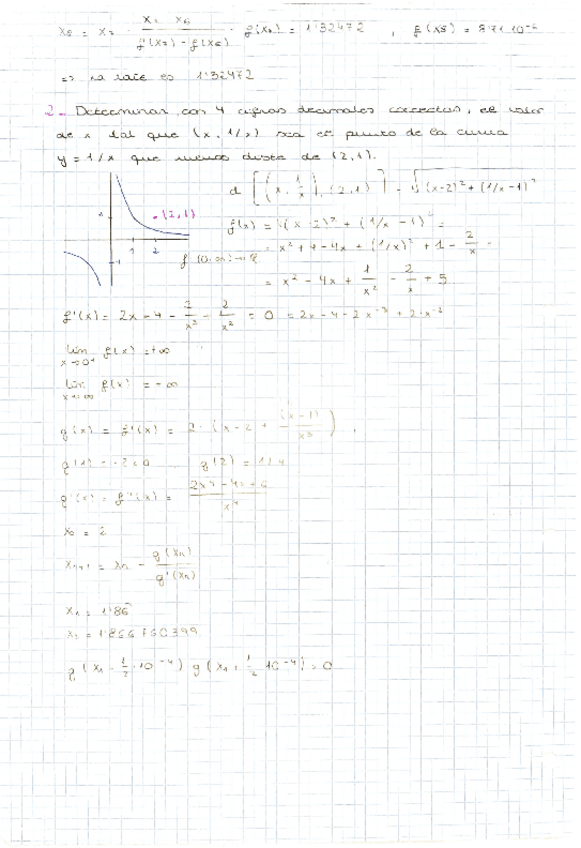 x₈ = x₇ - (x₇ - x₆) / (f(x₇) - f(x₆)) · f(x₇) = 1'32472 , f(x8) = 8'71·10⁻⁶
=> la raíz es 1'32472
2.- Determinar, con 4 cifras decimales correctas, el valor
de x tal que (x, 1/x) sea el punto de la curva
y = 1/x que menos dista de (2,1).
d [(x, 1/x), (2,1)] = √((x-2)² + (1/x - 1)²
1
•(2,1)
f(x) = ((x-2)² + (1/x - 1)² =
1 2
= x² + 4 - 4x + (1/x)² + 1 - 2/x =
-1
f (0,∞) → R
= x² - 4x + 1/x² - 2/x + 5
f'(x) = 2x - 4 - 2/x³ - 2/x² = 0 = 2x - 4 - 2x⁻³ + 2·x⁻²
lim x→0⁺ f(x) = +∞
lim x→∞ f(x) = -∞
g(x) = f'(x) = 2·(x - 2 + (x-1)/x³) ,
g(1) = -2<0 g(2) = 1/4
g'(x) = f''(x) = / x⁴
x₀ = 2
xₙ₊₁ = xₙ - g(xₙ) / g'(xₙ)
x₁ = 1'86
g(x₁ - 1/2·10⁻⁴) g(x₁ + 1/2 10⁻⁴) = 0